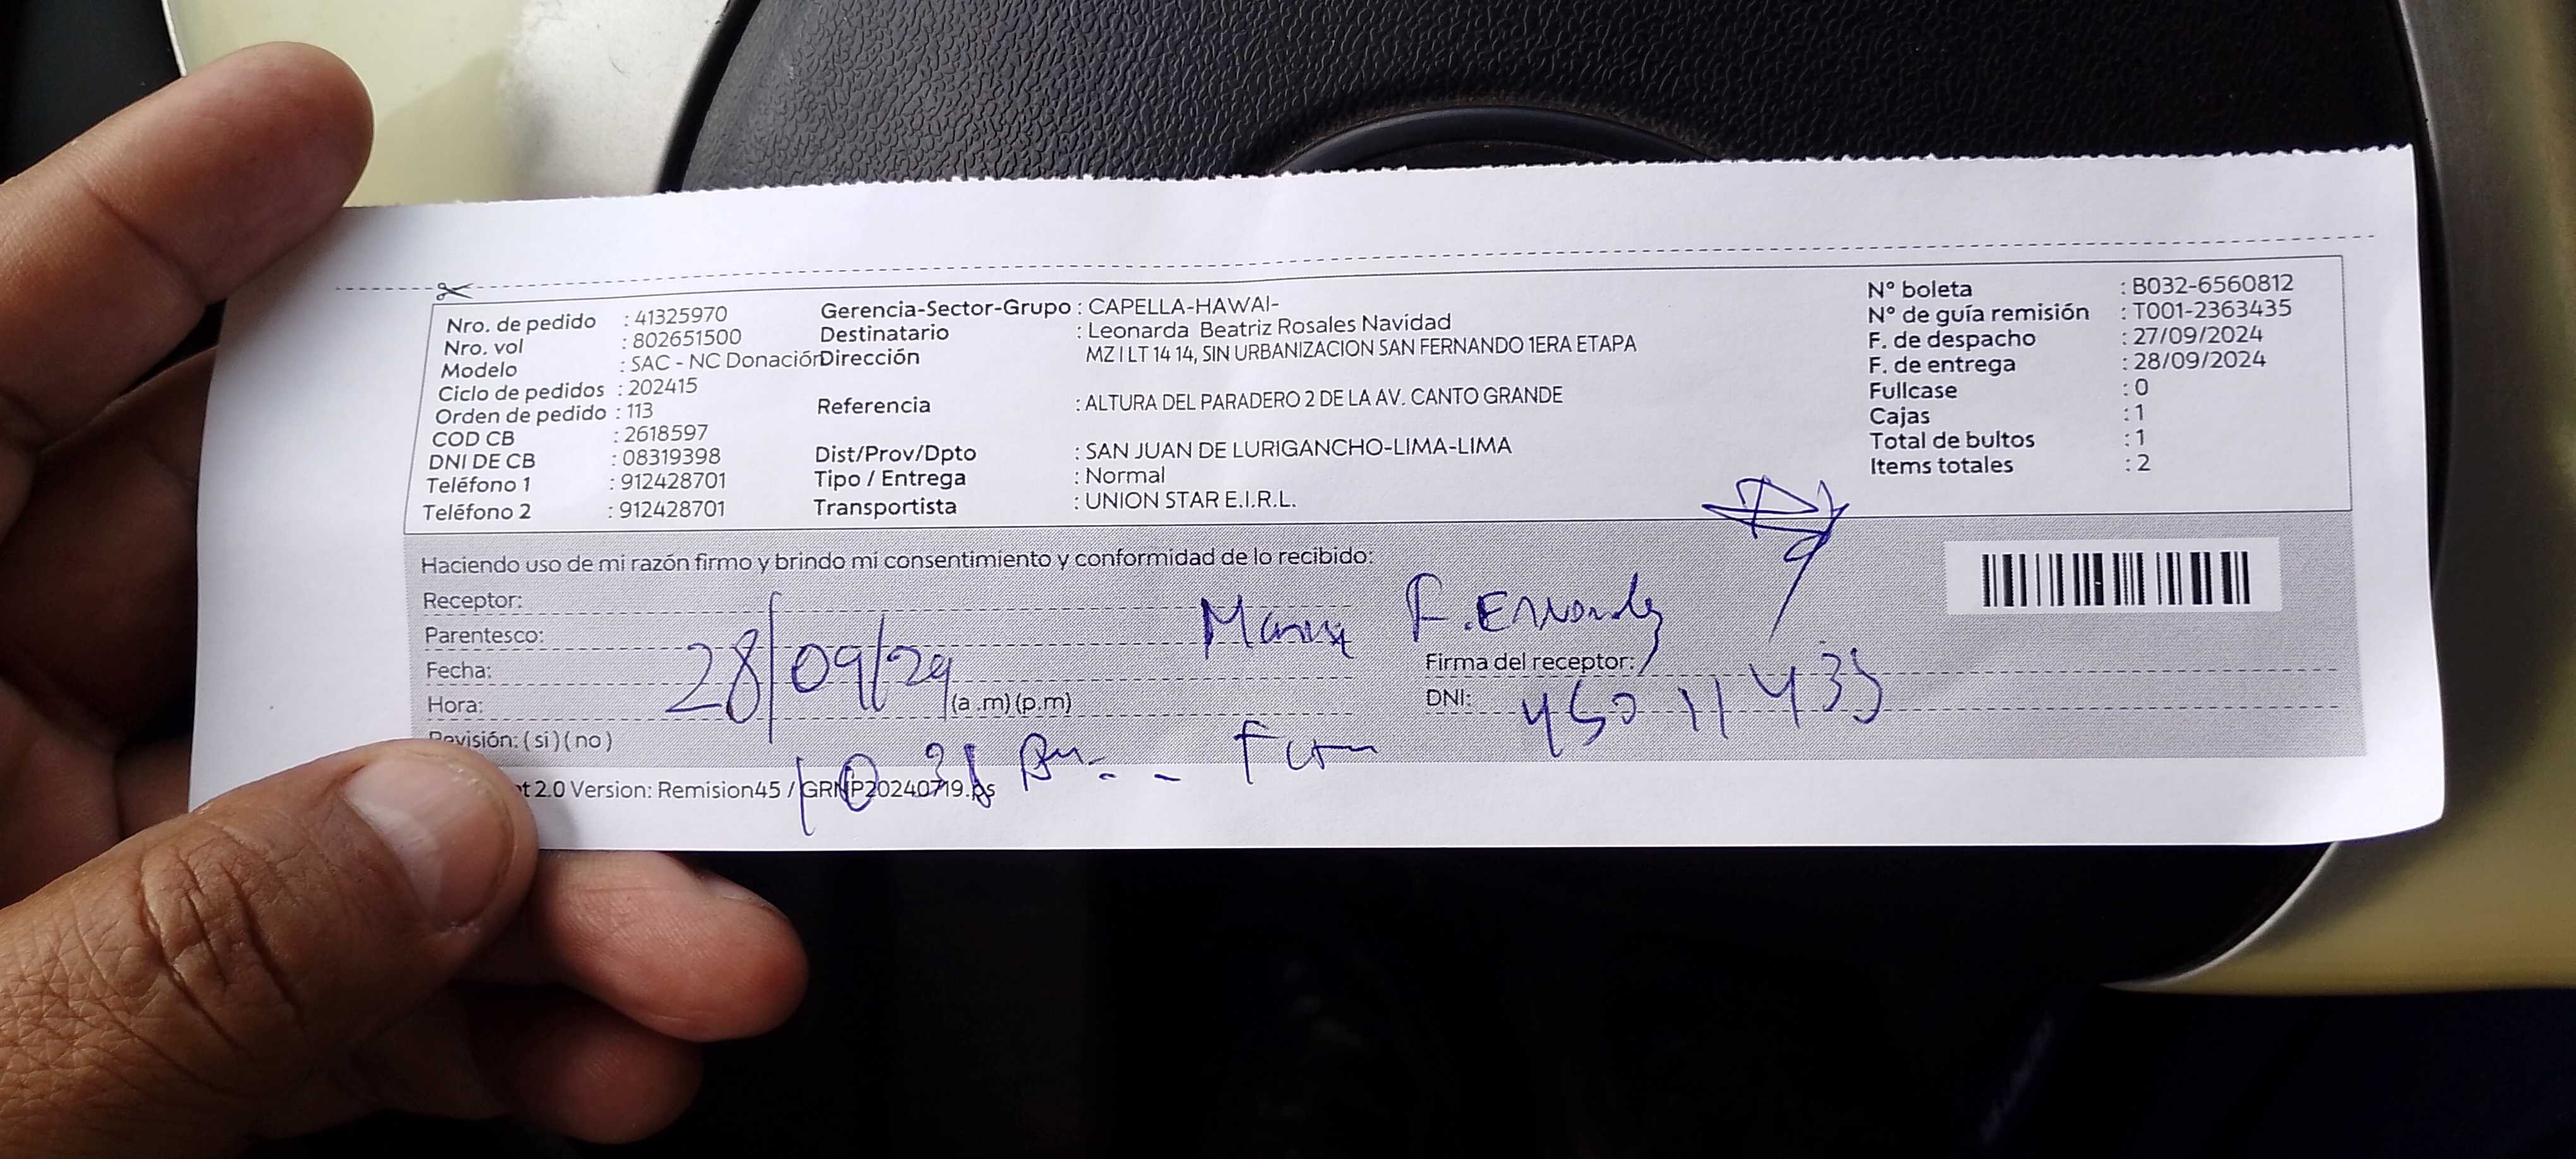 Nro. de pedido : 41325970
Nro. vol : 802651500
Modelo : SAC - NC Donación
Ciclo de pedidos : 202415
Orden de pedido : 113
COD CB : 2618597
DNI DE CB : 08319398
Teléfono 1 : 912428701
Teléfono 2 : 912428701
Gerencia-Sector-Grupo : CAPELLA-HAWAI-
Destinatario : Leonarda Beatriz Rosales Navidad
Dirección MZ I LT 14 14, SIN URBANIZACION SAN FERNANDO 1ERA ETAPA
Referencia : ALTURA DEL PARADERO 2 DE LA AV. CANTO GRANDE
Dist/Prov/Dpto : SAN JUAN DE LURIGANCHO-LIMA-LIMA
Tipo / Entrega : Normal
Transportista : UNION STAR E.I.R.L.
N° boleta : B032-6560812
N° de guía remisión : T001-2363435
F. de despacho : 27/09/2024
F. de entrega : 28/09/2024
Fullcase : 0
Cajas : 1
Total de bultos : 1
Items totales : 2
Haciendo uso de mi razón firmo y brindo mi consentimiento y conformidad de lo recibido:
Receptor:
Parentesco:
Fecha: 28/09/24
Hora: (a .m) (p.m)
Revisión: ( si ) ( no )
Firma del receptor:
DNI:
t 2.0 Version: Remision45 / GRNP20240719.